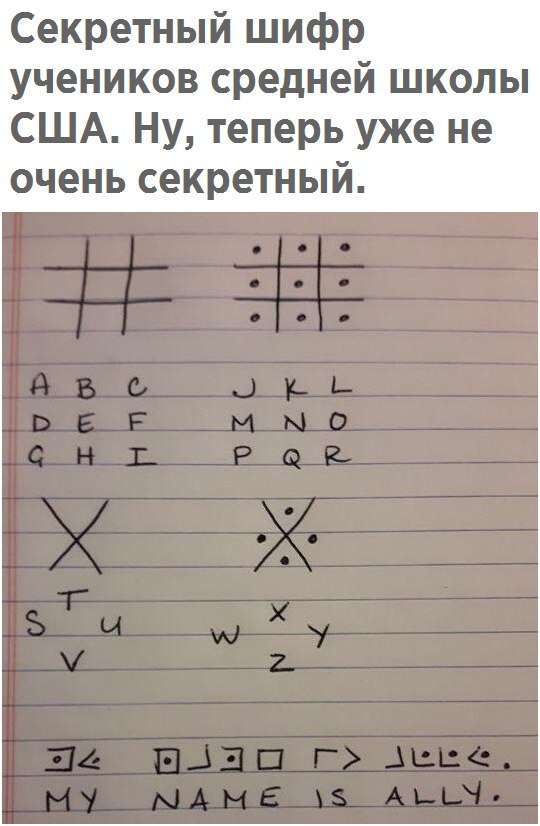 Секретный шифр
учеников средней школы
США. Ну, теперь уже не
очень секретный.
A B C J K L
D E F M N O
G H I P Q R
T X
S U W Y
V Z
MY NAME IS ALLY.